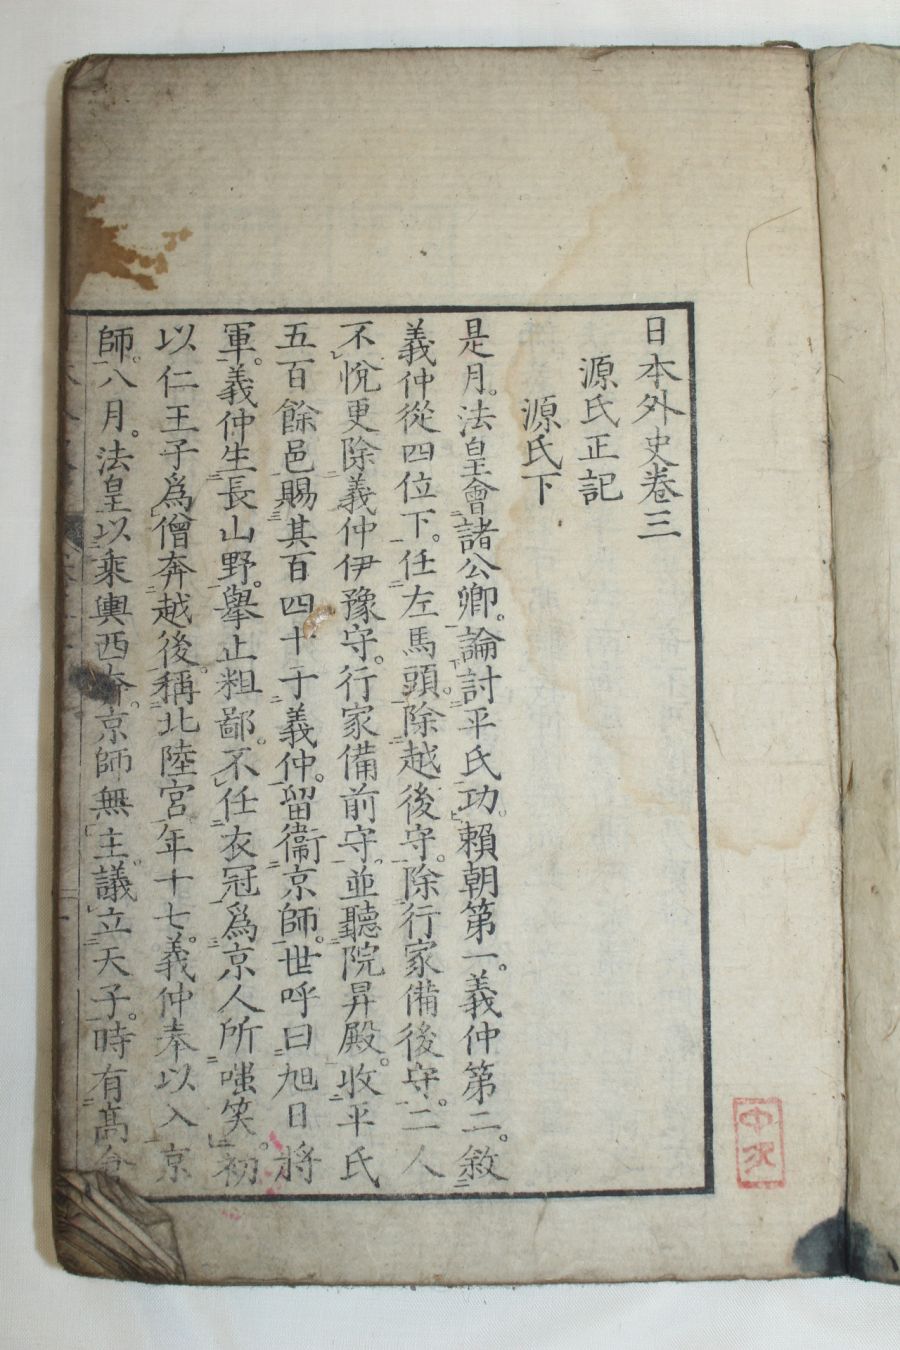 日本外史卷三
源氏正記
源氏下
是月。法皇會諸公卿。論討平氏功。賴朝第一。義仲第二。敘
義仲從四位下。任左馬頭。除越後守。除行家備後守。二人
不悅更除義仲伊豫守。行家備前守。並聽院昇殿。收平氏
五百餘邑賜其百四十于義仲。留衞京師。世呼曰旭日將
軍。義仲生長山野。舉止粗鄙。不任衣冠爲京人所嗤笑。初
以仁王子爲僧奔越後。稱北陸宮年十七。義仲奉以入京
師。八月。法皇以乘輿西奔。京師無主。議立天子。時有高倉